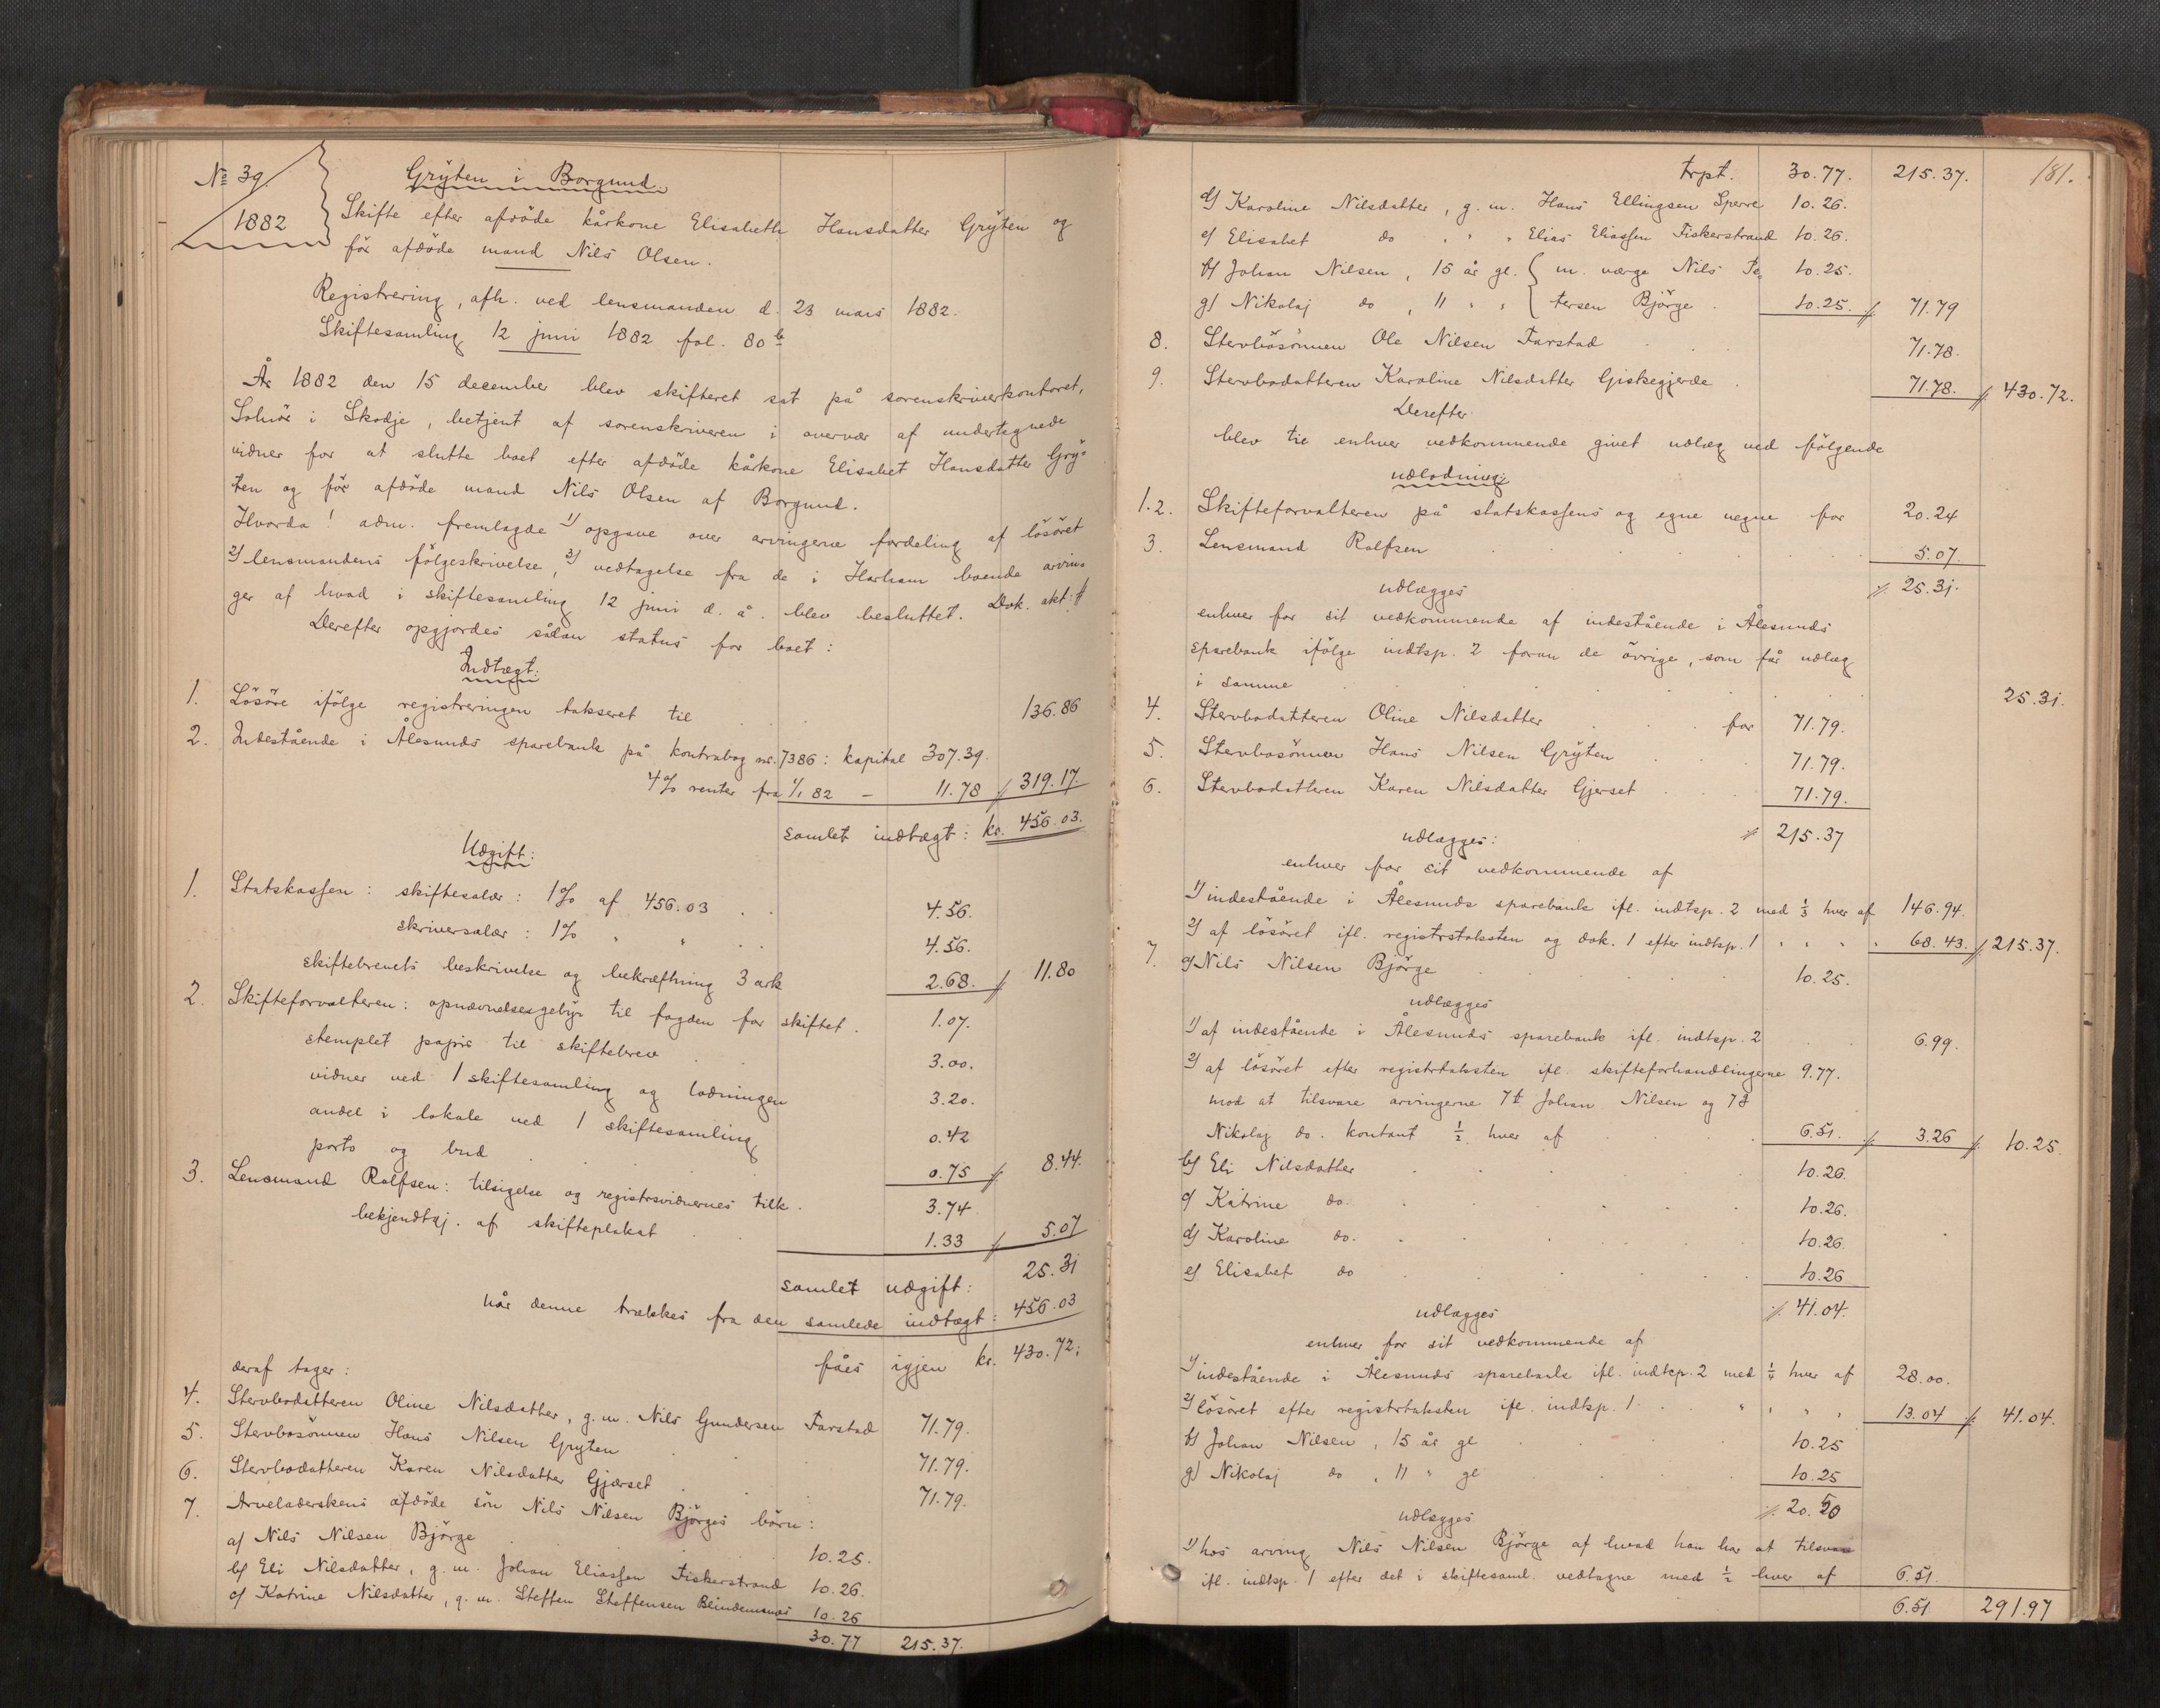 No 39.
1882
Grÿten i Borgund.
Skifte efter afdöde kårkone Elisabeth Hansdatter Grÿten og
för afdöde mand Nils Olsen.
Registrering, afh. ved lensmanden d. 23 mars 1882.
Skiftesamling 12 juni 1882 fol. 80 b
År 1882 den 15 december blev skifteret sat på sorenskriverkontoret,
Solnör i Skodje, betjent af sorenskriveren i overvær af undertegnede
vidner for at slutte boet efter afdöde kårkone Elisabet Hansdatter Grÿ-
ten og för afdöde mand Nils Olsen af Borgund.
Hvorda! adm. fremlagde 1) opgave over arvingerne fordeling af lösöret
2) lensmandens fölgeskrivelse, 3) vedtagelse fra de i Harham boende arvin-
ger af hvad i skiftesamling 12 juni d. å. blev besluttet. Dok. akt: #
Derefter opgjordes sådan status for boet:
Indtægt:
1. Lösöre ifölge registreringen takseret til 136.86
2. Indestående i Ålesunds sparebank på kontrabog nr. 7386: kapital 307.39.
4% renter fra 1/1 82 - 11.78 // 319.17.
samlet indtægt: kr. 456.03.
Udgift:
1. Statskassen: skiftesalær: 1% af 456.03 4.56.
skriversalær: 1% " " 4.56.
skiftebrevets beskrivelse og bekræftning 3 ark 2.68. // 11.80
2. Skifteforvalteren: opnævnelsesgebÿr til fogden for skiftet. 1.07.
stemplet papir til skiftebrev 3.00.
vidner ved 1 skiftesamling og lodningen 3.20.
andel i lokale ved 1 skiftesamling 0.42
porto og bud 0.75 // 8.44.
3. Lensmand Rolfsen: tilsigelse og registrsvidnernes tilk. 3.74
bekjendtgj. af skifteplakat 1.33 // 5.07
samlet udgift: 25.31
når denne trækkes fra den samlede indtægt: 456.03
fåes igjen kr. 430.72;
deraf tager:
4. Stervbodatteren Oline Nilsdatter, g. m. Nils Gundersen Farstad 71.79.
5. Stervbosönnen Hans Nilsen Grÿten 71.79.
6. Stervbodatteren Karen Nilsdatter Gjærset 71.79.
7. Arveladerskens afdöde sön Nils Nilsen Björges börn:
a) Nils Nilsen Björge 10.25.
b) Eli Nilsdatter, g. m. Johan Eliassen Fiskerstrand 10.26.
c) Katrine Nilsdatter, g. m. Steffen Steffensen Blindemsnæs 10.26
30.77 215.37.
trpt. 30.77. 215.37. 181.
d) Karoline Nilsdatter, g. m. Hans Ellingsen Sperre 10.26.
e) Elisabet do " " " Elias Eliassen Fiskerstrand 10.26.
f) Johan Nilsen, 15 år gl. { m. værge Nils Pe- 10.25.
g) Nikolaj do, 11 " " { tersen Björge. 10.25. // 71.79
8. Stervbosönnen Ole Nilsen Farstad 71.78.
9. Stervbodatteren Karoline Nilsdatter Giskegjerde 71.78. // 430.72.
Derefter
blev til enhver vedkommende givet udlæg ved fölgende
udlodning:
1.2. Skifteforvalteren på statskassens og egne vegne for 20.24
3. Lensmand Rolfsen 5.07.
udlægges // 25.31.
enhver for sit vedkommende af indestående i Ålesunds
sparebank ifölge indtsp. 2 foran de övrige, som får udlæg
i samme 25.31.
4. Stervbodatteren Oline Nilsdatter for 71.79.
5. Stervbosönnen Hans Nilsen Grÿten 71.79.
6. Stervbodatteren Karen Nilsdatter Gjerset 71.79.
udlægges: // 215.37
enhver for sit vedkommende af
1) indestående i Ålesunds sparebank ifl. indtsp. 2 med 1/3 hver af 146.94.
2) af lösöret ifl. registrstaksten og dok. 1 efter indtsp. 1 " " " " 68.43. // 215.37.
7. a) Nils Nilsen Björge 10.25.
udlægges
1) af indestående i Ålesunds sparebank ifl. indtsp. 2 6.99.
2) af lösöret efter registrtaksten ifl. skifteforhandlingerne 9.77.
mod at tilsvare arvingerne 7 f Johan Nilsen og 7 g
Nikolaj do. kontant 1/2 hver af 6.51. // 3.26 // 10.25.
b) Eli Nilsdatter 10.26.
c) Katrine do. 10.26.
d) Karoline do. 10.26.
e) Elisabet do 10.26
udlægges // 41.04.
enhver for sit vedkommende af
1) indestående i Ålesunds sparebank ifl. indtsp. 2 med 1/4 hver af 28.00.
2) lösöret efter registrtaksten ifl. indtsp. 1. " " " " 13.04 // 41.04.
f) Johan Nilsen, 15 år gl 10.25
g) Nikolaj do, 11 " gl 10.25
udlægges // 20.50
1) hos arving Nils Nilsen Björge af hvad han har at tilsvare
ifl. indtsp. 1 efter det i skiftesaml. vedtagne med 1/2 hver af 6.51.
6.51 291.97